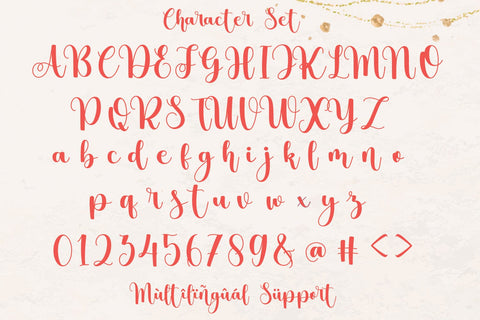 Character Set
ABCDEFGHIJKLMNO
PQRSTUVWXYZ
a b c d e f g h i j k l m n o
p q r s t u v w x y z
0123456789& @ # < >
Mùltîlïñgûál Süppört